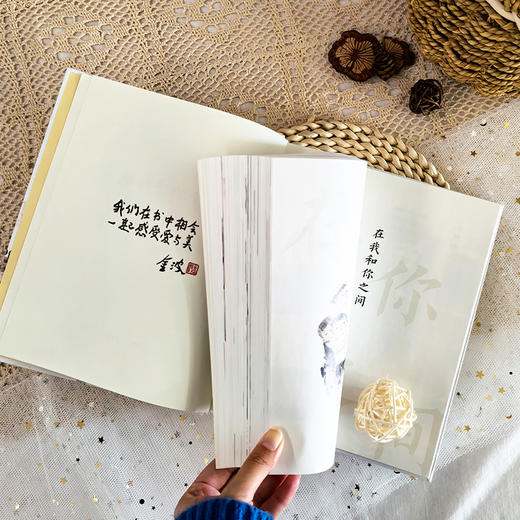 我们在书中相会
一起感受爱与美
金波
在我和你之间
你
间